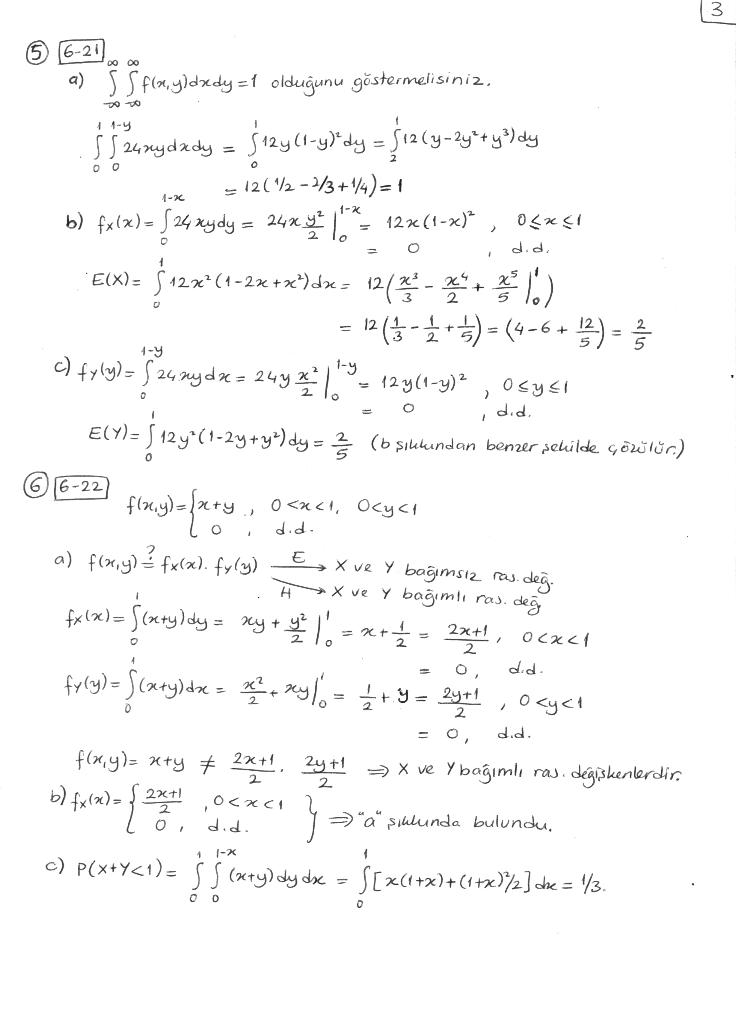 3
⑤ 6-21
a) ∫_{-∞}^{∞} ∫_{-∞}^{∞} f(x,y)dxdy = 1 olduğunu göstermelisiniz.
∫_0^1 ∫_0^{1-y} 24xydxdy = ∫_0^1 12y(1-y)²dy = ∫_2^1 12(y-2y²+y³)dy
= 12(1/2 - 2/3 + 1/4) = 1
b) fx(x) = ∫_0^{1-x} 24xydy = 24x y²/2 |_0^{1-x} = 12x(1-x)² , 0≤x≤1
= 0 , d.d.
E(X) = ∫_0^1 12x²(1-2x+x²)dx = 12(x³/3 - x⁴/2 + x⁵/5 |_0^1)
= 12(1/3 - 1/2 + 1/5) = (4-6+12/5) = 2/5
c) fy(y) = ∫_0^{1-y} 24xydx = 24y x²/2 |_0^{1-y} = 12y(1-y)² , 0≤y≤1
= 0 , d.d.
E(Y) = ∫_0^1 12y²(1-2y+y²)dy = 2/5 (b şıkkından benzer şekilde çözülür.)
⑥ 6-22
f(x,y) = { x+y , 0<x<1, 0<y<1
0 , d.d.
a) f(x,y) ?= fx(x). fy(y) E→ X ve Y bağımsız ras. değ.
H→ X ve Y bağımlı ras. değ
fx(x) = ∫_0^1 (x+y)dy = xy + y²/2 |_0^1 = x + 1/2 = (2x+1)/2 , 0<x<1
= 0, d.d.
fy(y) = ∫_0^1 (x+y)dx = x²/2 + xy |_0^1 = 1/2 + y = (2y+1)/2 , 0<y<1
= 0, d.d.
f(x,y) = x+y ≠ (2x+1)/2 . (2y+1)/2 ⇒ X ve Y bağımlı ras. değişkenlerdir.
b) fx(x) = { (2x+1)/2 , 0<x<1 } ⇒ "a" şıkkında bulundu.
0 , d.d.
c) P(X+Y<1) = ∫_0^1 ∫_0^{1-x} (x+y)dydx = ∫_0^1 [x(1+x)+(1+x)²/2]dx = 1/3.